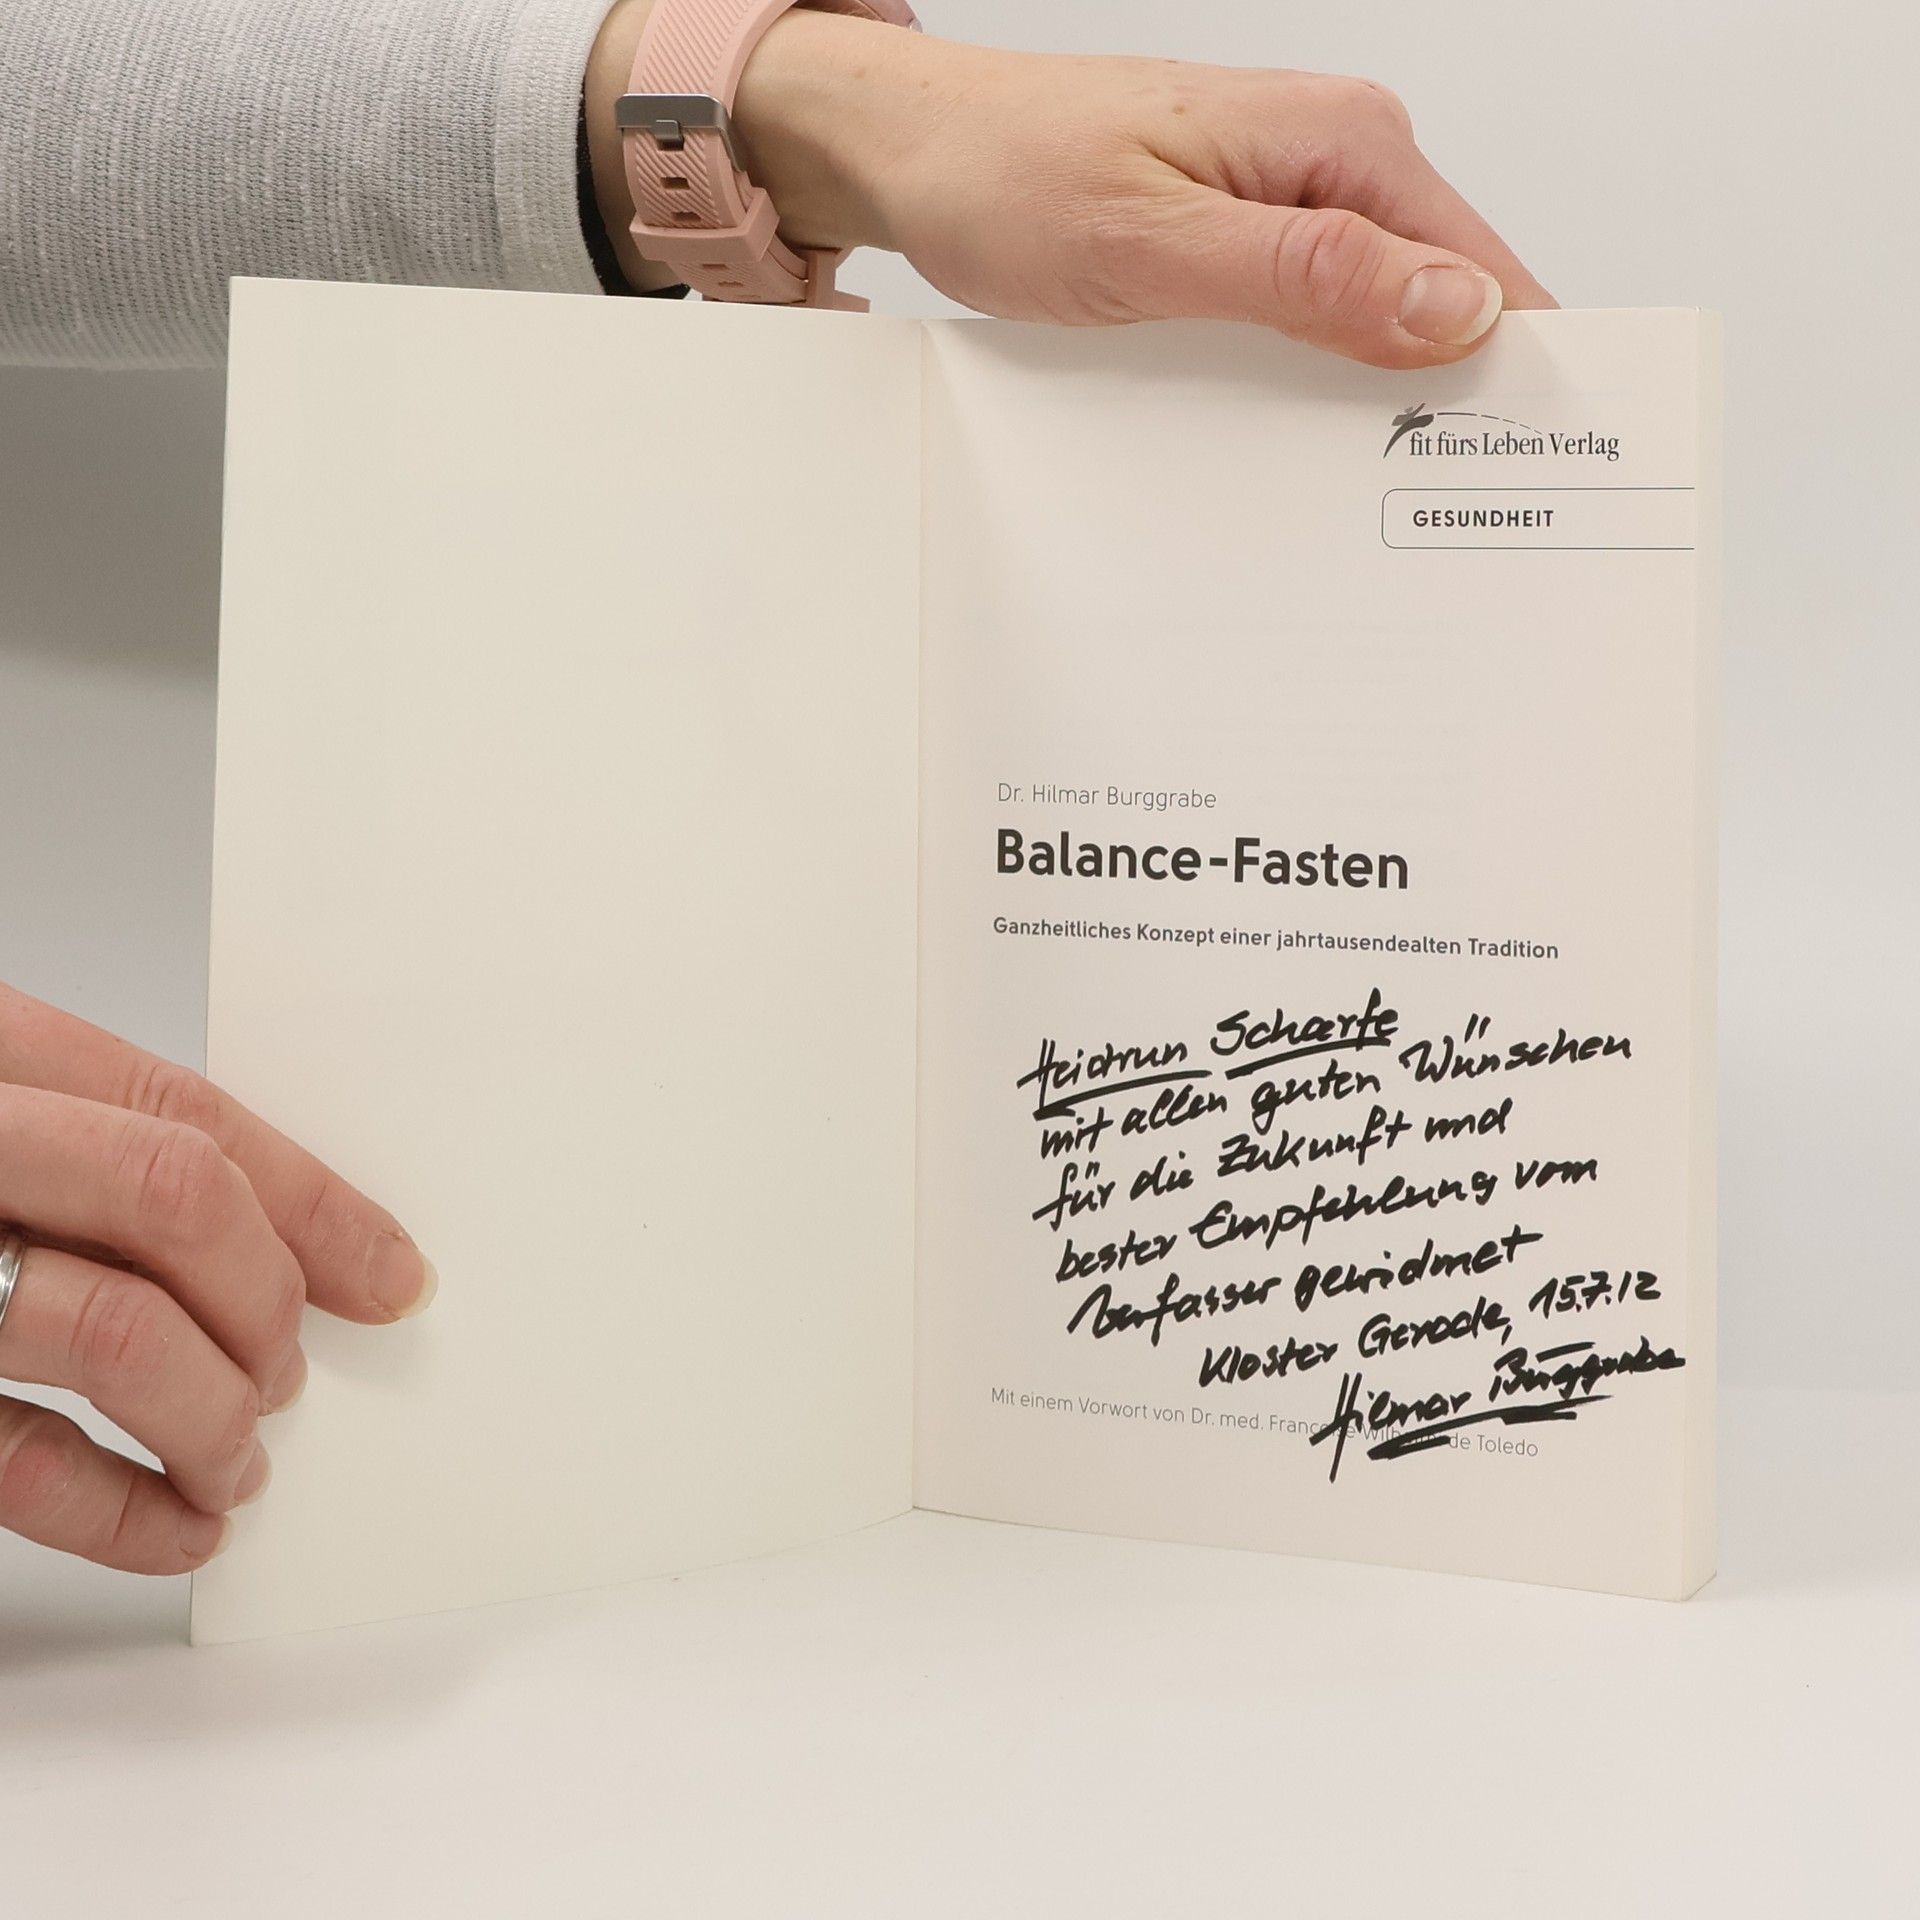 fit fürs Leben Verlag
GESUNDHEIT
Dr. Hilmar Burggrabe
Balance-Fasten
Ganzheitliches Konzept einer jahrtausendealten Tradition
Heidrun Scharfe
mit allen guten Wünschen
für die Zukunft und
bester Empfehlung vom
Verfasser gewidmet
Kloster Gerode, 15.7.12
Hilmar Burggrabe
Mit einem Vorwort von Dr. med. de Toledo